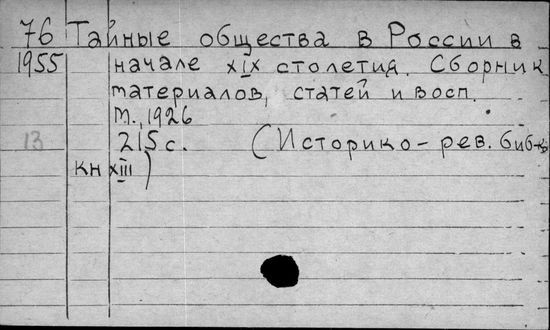 76 Тайные общества в России в
1955 начале XIX столетия. Сборник
материалов, статей и восп.
М., 1926
13 215 с. (Историко-рев. биб-ка
кн XIII)